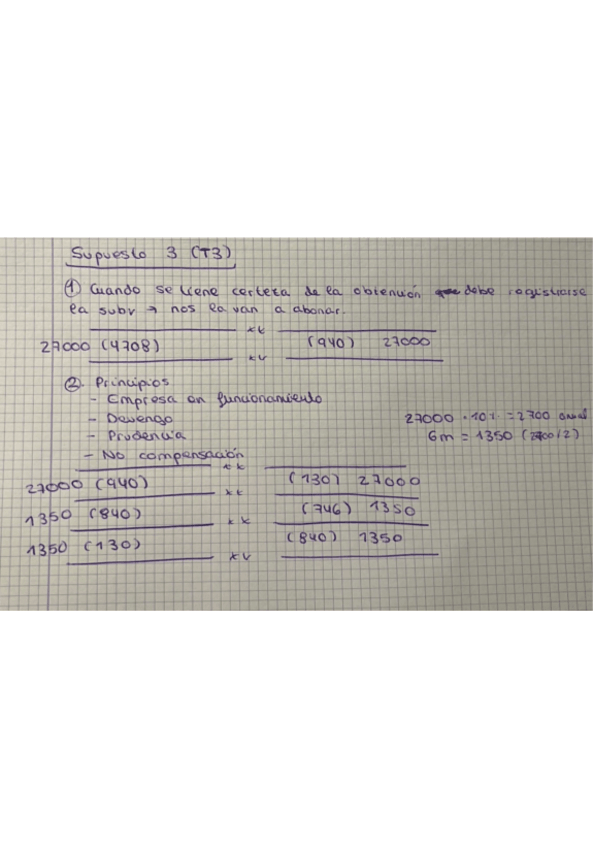 Supuesto 3 (T3)
① Cuando se tiene certeza de la obtención debe registrarse
la subv → nos la van a abonar.
xx
27000 (4708) (940) 27000
xx
②. Principios
- Empresa en funcionamiento
- Devengo 27000 · 10% = 2700 anual
- Prudencia 6m = 1350 (2700/2)
- No compensación
xx
27000 (940) (130) 27000
xx
1350 (840) (746) 1350
xx
1350 (130) (840) 1350
xx